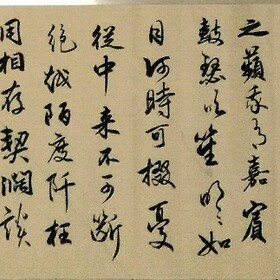 之蘋我有嘉賓
鼓瑟吹笙明明如
月何時可掇憂
從中来不可斷
越陌度阡枉
用相存契闊談